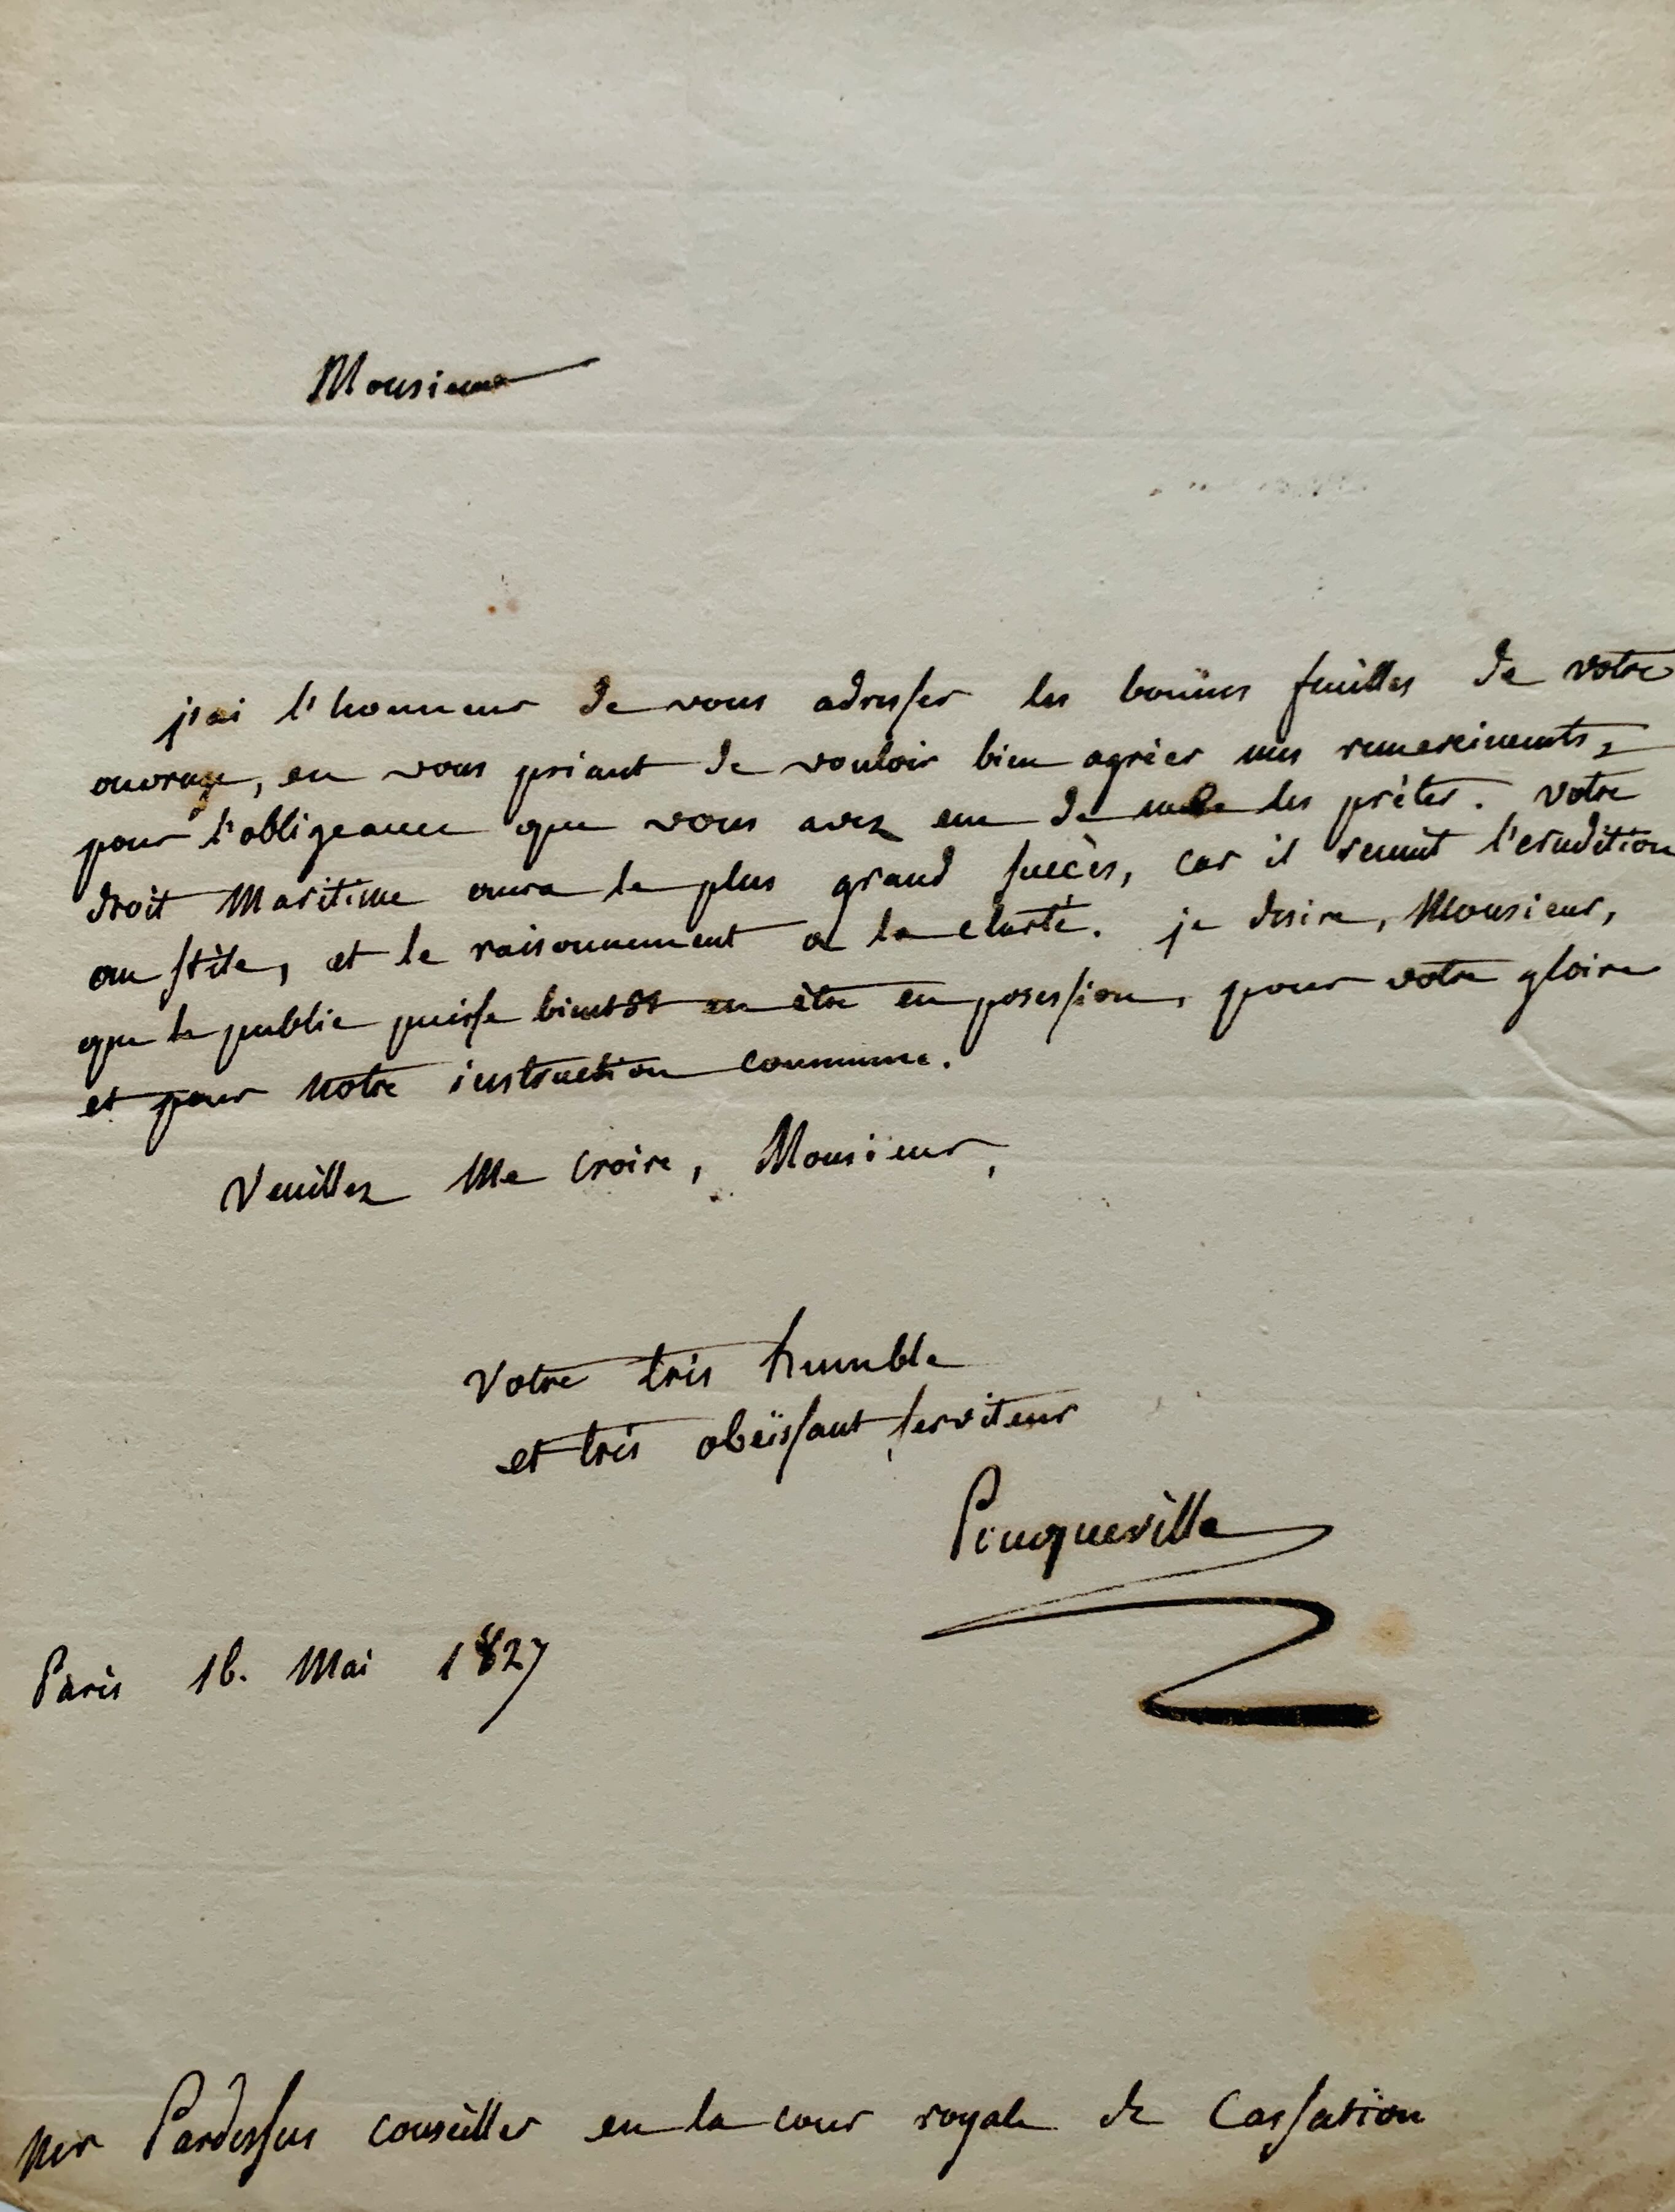 Monsieur
j'ai l'honneur de vous adresser les bonnes feuilles de votre
ouvrage, en vous priant de vouloir bien agréer mes remerciments,
pour l'obligeance que vous avez eue de me les prêter. Votre
droit Maritime aura le plus grand succès, car il reunit l'erudition
au stile, et le raisonnement a la clarté. je desire, Monsieur,
que le public puisse bientôt en être en posession, pour votre gloire
et pour notre instruction commune.
Veuillez Me croire, Monsieur,
Votre très humble
et très obeïssant serviteur
Pouqueville
Paris 16. Mai 1827
Mr Pardessus conseiller en la cour royale de Cassation